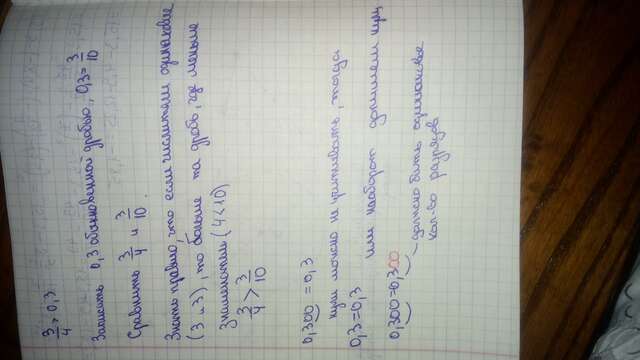 3/4 > 0,3
Записать 0,3 обыкновенной дробью, 0,3 = 3/10
Сравнить 3/4 и 3/10.
Знать правило, что если числители одинаковые
(3 и 3), то больше та дробь, где меньше
знаменатель (4<10)
3/4 > 3/10
0,300 = 0,3
нули можно не учитывать, тогда
0,3=0,3
или наоборот допишем нули
0,300=0,300
должно быть одинаковое
кол-во разрядов